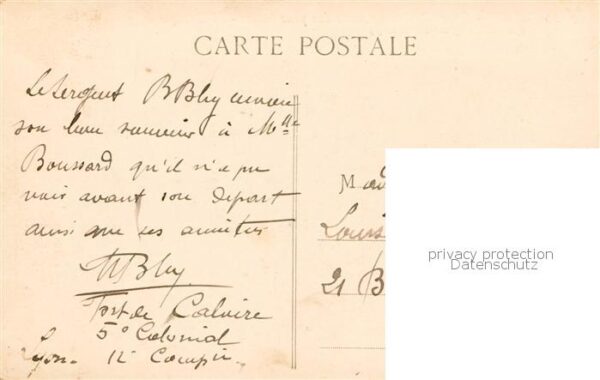 CARTE POSTALE
Le Sergent BBly envoie
son bon souvenir à Mlle
Boussard qu'il n'a pu
voir avant son départ
ainsi que ses amitiés
BBly
Fort de Caluire
5e Colonial
Lyon. 12e Compie
M
Louis
21 B
privacy protection
Datenschutz